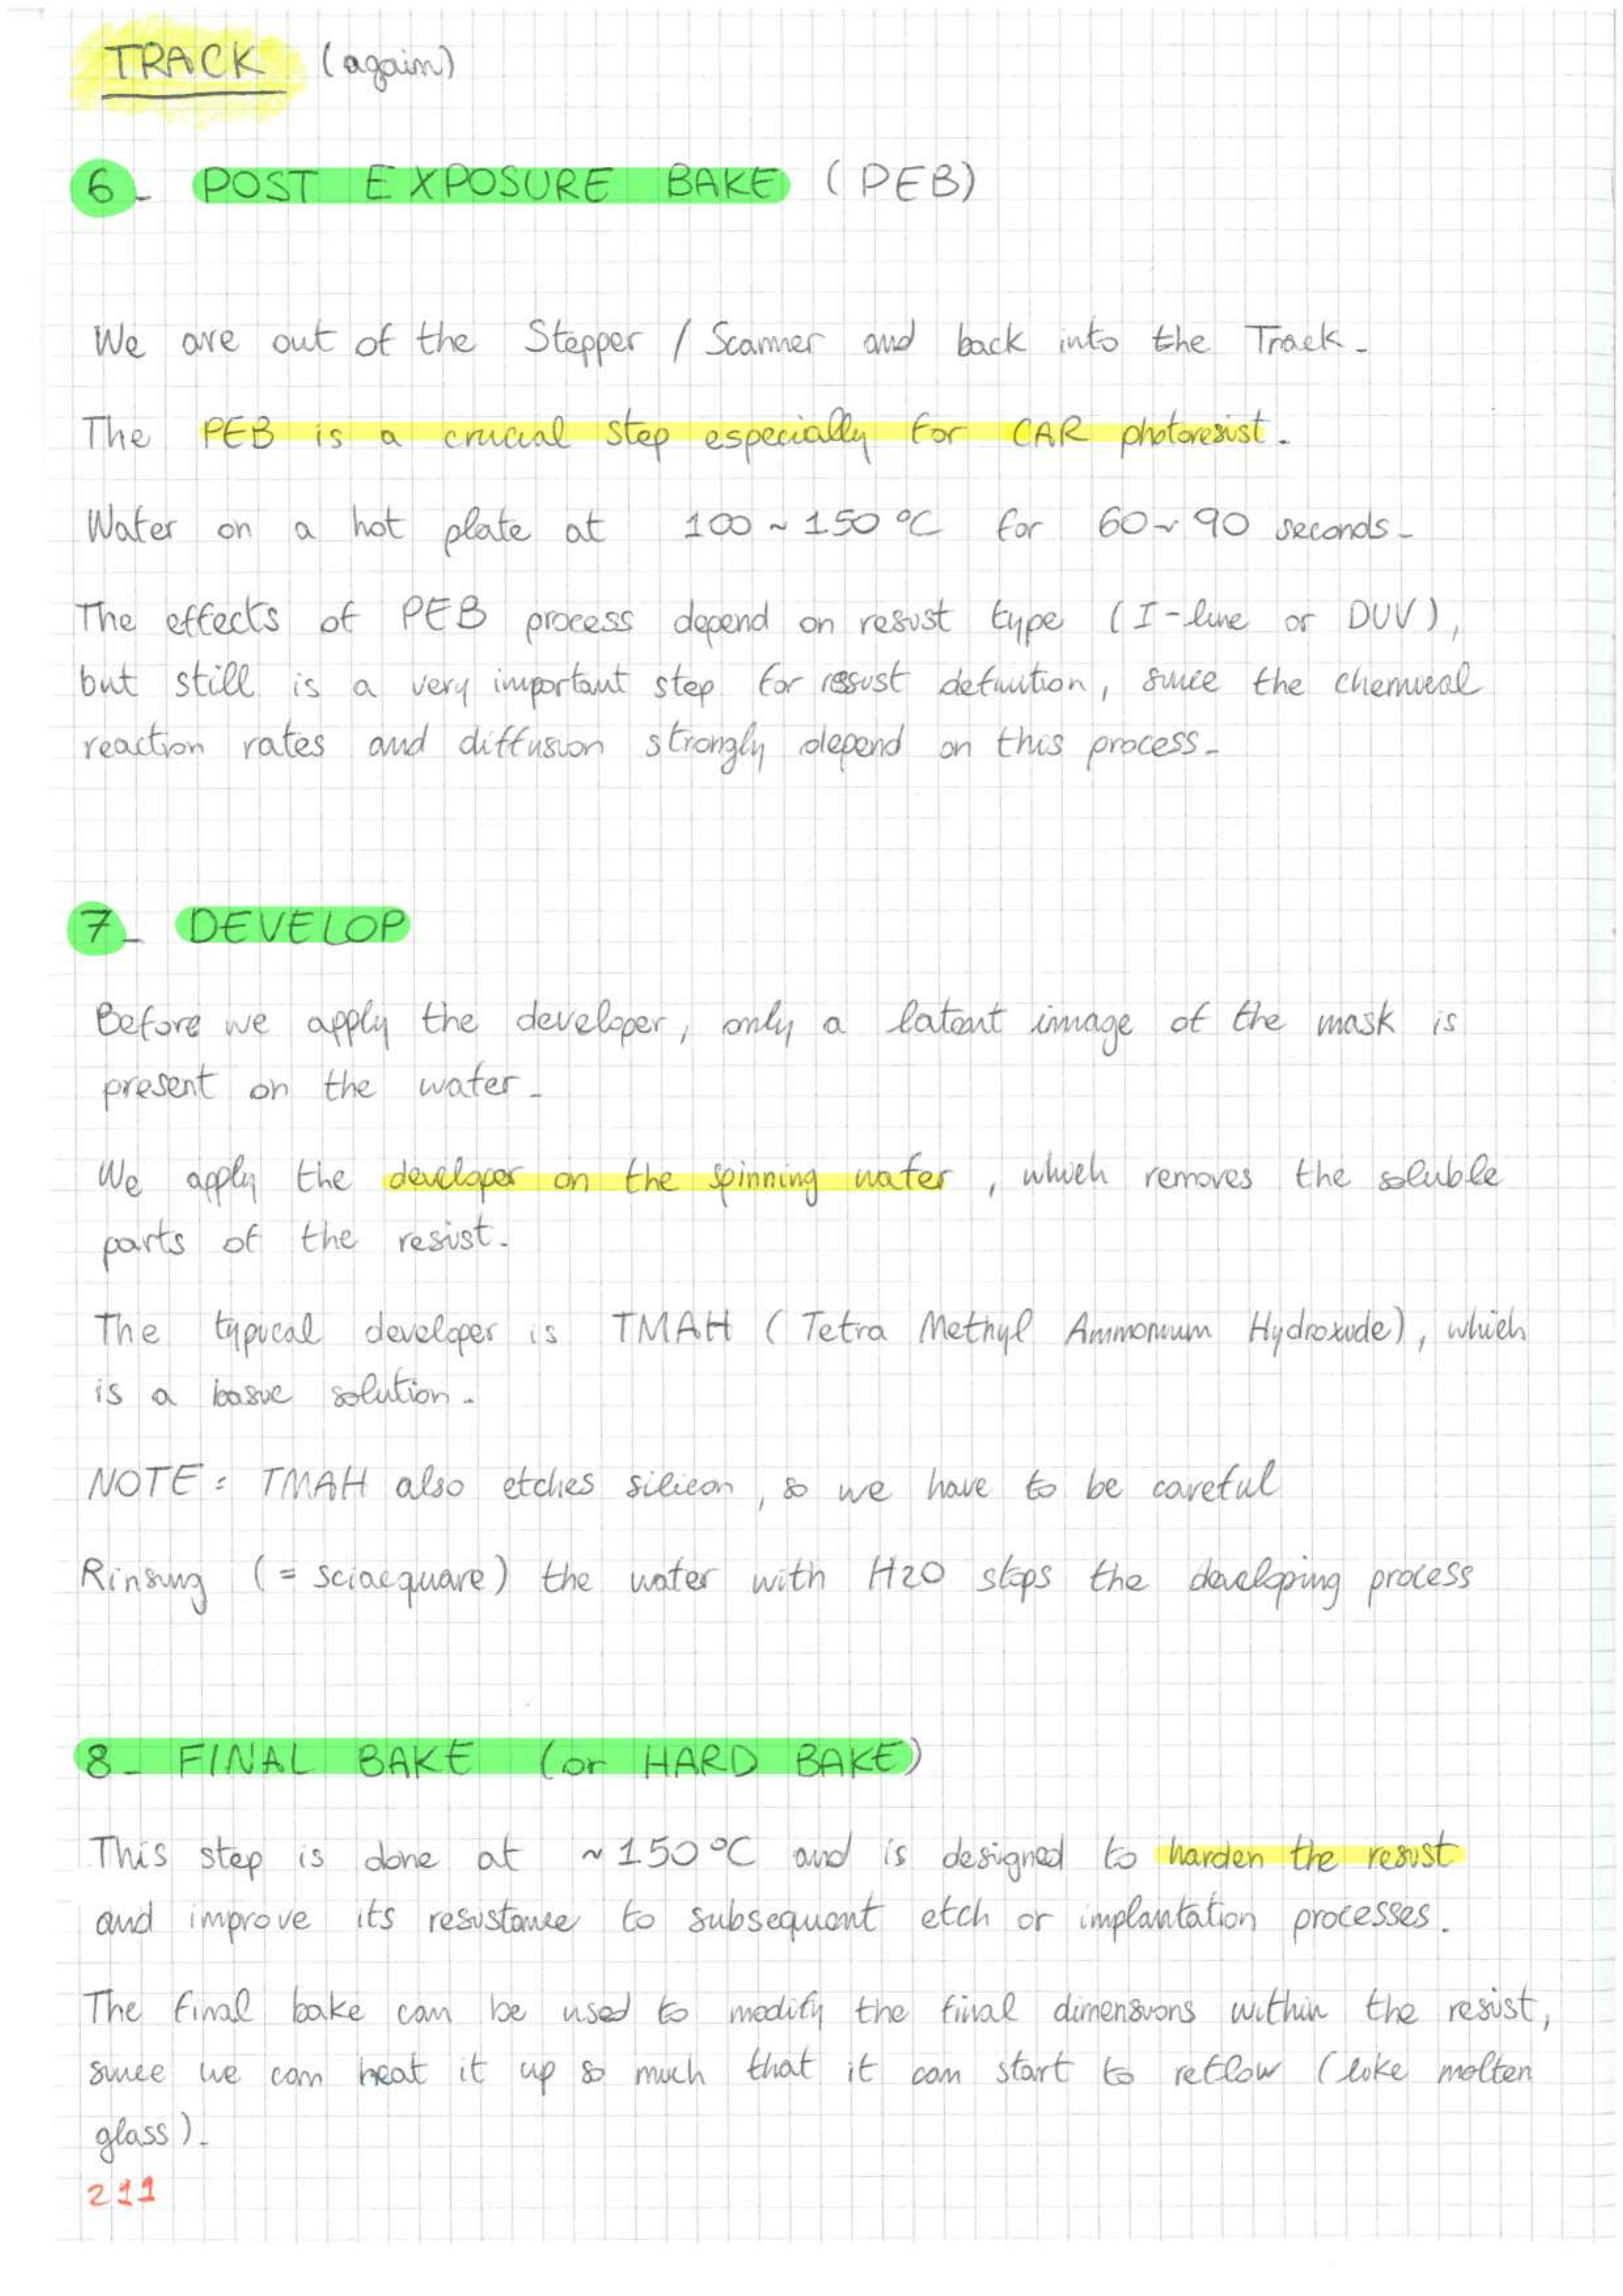 TRACK (again)
6- POST EXPOSURE BAKE (PEB)
We are out of the Stepper / Scanner and back into the Track.
The PEB is a crucial step especially for CAR photoresist.
Wafer on a hot plate at 100 ~ 150 °C for 60 ~ 90 seconds.
The effects of PEB process depend on resist type (I-line or DUV),
but still is a very important step for resist definition, since the chemical
reaction rates and diffusion strongly depend on this process.
7- DEVELOP
Before we apply the developer, only a latent image of the mask is
present on the wafer.
We apply the developer on the spinning wafer, which removes the soluble
parts of the resist.
The typical developer is TMAH (Tetra Methyl Ammonium Hydroxide), which
is a basic solution.
NOTE: TMAH also etches silicon, so we have to be careful
Rinsing (= sciacquare) the wafer with H2O stops the developing process
8- FINAL BAKE (or HARD BAKE)
This step is done at ~150°C and is designed to harden the resist
and improve its resistance to subsequent etch or implantation processes.
The final bake can be used to modify the final dimensions within the resist,
since we can heat it up so much that it can start to reflow (like molten
glass).
211